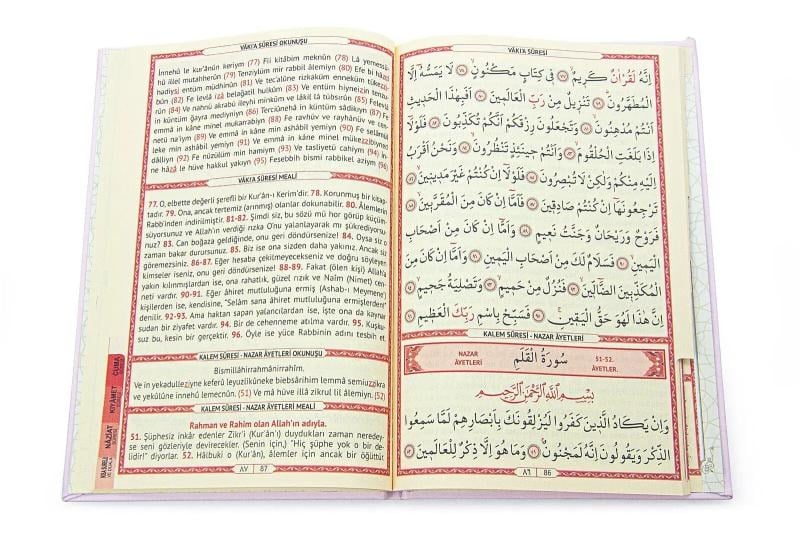 VÂKI'A SÛRESİ
إِنَّهُ لَقُرْاٰنٌ كَرِيمٌ ﴿٧٧﴾ فِي كِتَابٍ مَكْنُونٍ ﴿٧٨﴾ لَا يَمَسُّهُ إِلَّا
الْمُطَهَّرُونَ ﴿٧٩﴾ تَنْزِيلٌ مِنْ رَبِّ الْعَالَمِينَ ﴿٨٠﴾ أَفَبِهٰذَا الْحَدِيثِ
أَنْتُمْ مُدْهِنُونَ ﴿٨١﴾ وَتَجْعَلُونَ رِزْقَكُمْ أَنَّكُمْ تُكَذِّبُونَ ﴿٨٢﴾ فَلَوْلَا
إِذَا بَلَغَتِ الْحُلْقُومَ ﴿٨٣﴾ وَأَنْتُمْ حِينَئِذٍ تَنْظُرُونَ ﴿٨٤﴾ وَنَحْنُ أَقْرَبُ
إِلَيْهِ مِنْكُمْ وَلٰكِنْ لَا تُبْصِرُونَ ﴿٨٥﴾ فَلَوْلَا إِنْ كُنْتُمْ غَيْرَ مَدِينِينَ ﴿٨٦﴾
تَرْجِعُونَهَا إِنْ كُنْتُمْ صَادِقِينَ ﴿٨٧﴾ فَأَمَّا إِنْ كَانَ مِنَ الْمُقَرَّبِينَ ﴿٨٨﴾
فَرَوْحٌ وَرَيْحَانٌ وَجَنَّتُ نَعِيمٍ ﴿٨٩﴾ وَأَمَّا إِنْ كَانَ مِنْ أَصْحَابِ
الْيَمِينِ ﴿٩٠﴾ فَسَلَامٌ لَكَ مِنْ أَصْحَابِ الْيَمِينِ ﴿٩١﴾ وَأَمَّا إِنْ كَانَ مِنَ
الْمُكَذِّبِينَ الضَّالِّينَ ﴿٩٢﴾ فَنُزُلٌ مِنْ حَمِيمٍ ﴿٩٣﴾ وَتَصْلِيَةُ جَحِيمٍ ﴿٩٤﴾
إِنَّ هٰذَا لَهُوَ حَقُّ الْيَقِينِ ﴿٩٥﴾ فَسَبِّحْ بِاسْمِ رَبِّكَ الْعَظِيمِ ﴿٩٦﴾
KALEM SÛRESİ - NAZAR ÂYETLERİ
NAZAR ÂYETLERİ سُورَةُ الْقَلَمِ 51-52. ÂYETLER.
بِسْمِ اللّٰهِ الرَّحْمٰنِ الرَّحِيمِ
وَإِنْ يَكَادُ الَّذِينَ كَفَرُوا لَيُزْلِقُونَكَ بِأَبْصَارِهِمْ لَمَّا سَمِعُوا
الذِّكْرَ وَيَقُولُونَ إِنَّهُ لَمَجْنُونٌ ﴿٥١﴾ وَمَا هُوَ إِلَّا ذِكْرٌ لِلْعَالَمِينَ ﴿٥٢﴾
٨٦ 86
VÂKI'A SÛRESİ OKUNUŞU
İnnehü le kur'ânün keriym (77) Fii kitâbim meknûn (78) Lâ yemessü-
hû illel mutahherûn (79) Tenziylüm mir rabbil âlemiyn (80) Efe bi hâzel
hadiysi entüm müdhinûn (81) Ve tec'alûne rizkaküm enneküm tükezzi-
bûn (82) Fe levlâ izâ belağatil hulkûm (83) Ve entüm hiyneizin tenzu-
rûn (84) Ve nahnü akrabü ileyhi minküm ve lâkil lâ tübsırûn (85) Felevlâ
in küntüm ğayra mediyniyn (86) Terciûnehâ in küntüm sâdikıyn (87) Fe
emmâ in kâne minel mukarrabiyn (88) Fe ravhüv ve rayhânüv ve cen-
netü na'iym (89) Ve emmâ in kâne min ashâbil yemiyn (90) Fe selâmül
leke min ashâbil yemiyn (91) Ve emmâ in kâne minel mükezzibiyned
dâlliyn (92) Fe nüzülüm min hamiym (93) Ve tasliyetü cahiym (94) İn-
ne hâzâ le hüve hakkul yakıyn (95) Fesebbih bismi rabbikel aziym (96)
VÂKI'A SÛRESİ MEALİ
77. O, elbette değerli şerefli bir Kur'ân-ı Kerim'dir. 78. Korunmuş bir kitap-
tadır. 79. Ona, ancak tertemiz (arınmış) olanlar dokunabilir. 80. Âlemlerin
Rabb'inden indirilmiştir. 81-82. Şimdi siz, bu sözü mü hor görüp küçüm-
süyorsunuz ve Allah'ın verdiği rızka O'nu yalanlayarak mı şükrediyorsu-
nuz? 83. Can boğaza geldiğinde, onu geri döndürsenize! 84. Oysa siz o
zaman bakar durursunuz. 85. Biz ise ona sizden daha yakınız. Ancak siz
göremezsiniz. 86-87. Eğer hesaba çekilmeyecekseniz ve doğru söyleyen
kimseler iseniz, onu geri döndürsenize! 88-89. Fakat (ölen kişi) Allah'a
yakın kılınmışlardan ise, ona rahatlık, güzel rızık ve Naîm (Nimet) cen-
neti vardır. 90-91. Eğer âhiret mutluluğuna ermiş (Ashab-ı Meymene')
kişilerden ise, kendisine, "Selâm sana âhiret mutluluğuna ermişlerden!"
denilir. 92-93. Ama haktan sapan yalancılardan ise, işte ona da kaynar
sudan bir ziyafet vardır. 94. Bir de cehenneme atılma vardır. 95. Kuşku-
suz bu, kesin bir gerçektir. 96. Öyle ise yüce Rabbinin adını tesbih et.
KALEM SÛRESİ - NAZAR ÂYETLERİ OKUNUŞU
Bismillâhirrahmânirrahîm.
Ve in yekadulleziyne keferû leyuzlikûneke biebsârihim lemmâ semiuzzikra
ve yekûlûne innehû lemecnûn. (51) Ve mâ hüve illâ zikrul lil âlemiyn. (52)
KALEM SÛRESİ - NAZAR ÂYETLERİ MEALİ
Rahman ve Rahim olan Allah'ın adıyla.
51. Şüphesiz inkâr edenler Zikr'i (Kur'ân'ı) duydukları zaman neredey-
se seni gözleriyle devirecekler. (Senin için,) "Hiç şüphe yok o bir de-
lidir!" diyorlar. 52. Hâlbuki o (Kur'ân), âlemler için ancak bir öğüttür.
٨٧ 87
CUMA
KIYÂMET
NÂZİÂT